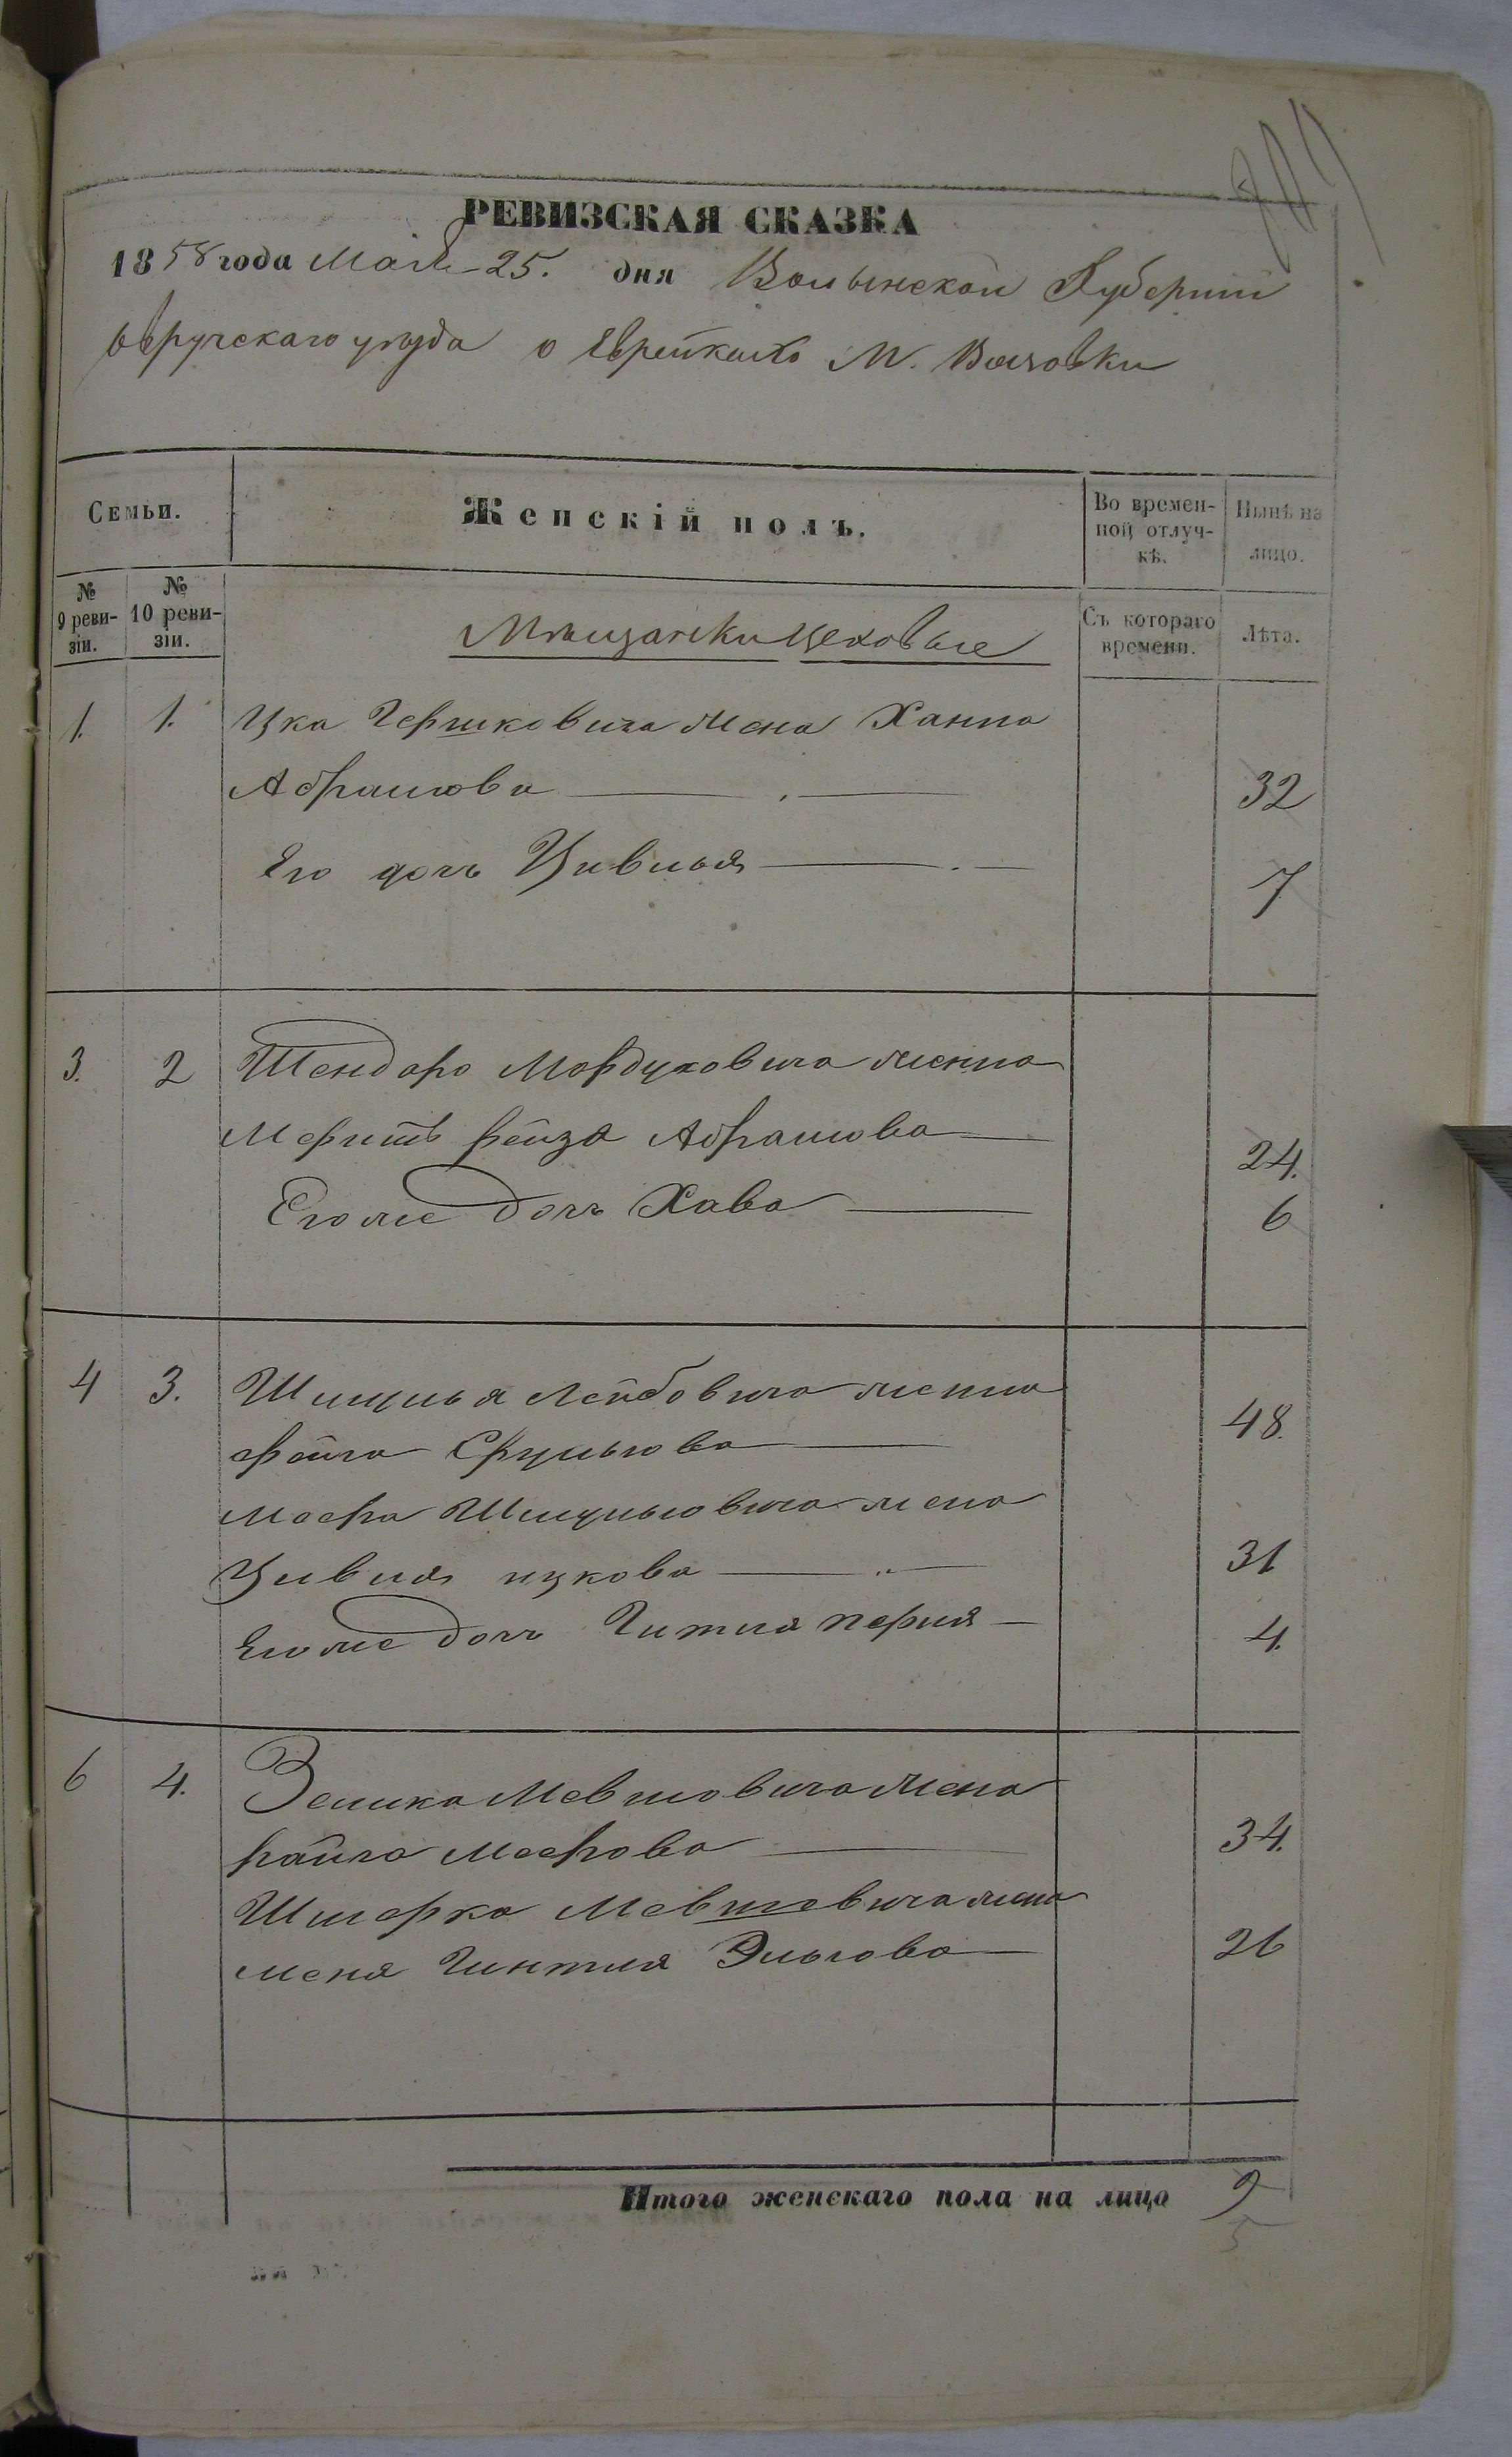 РЕВИЗСКАЯ СКАЗКА
1858 года Мая 25. дня Волынской Губернiи
Овручскаго уѣзда о Еврейкахъ М.
Семьи.
Женскiй полъ.
Во времен-
ной отлуч-
кѣ.
Нынѣ на
лицо.
№
9 реви-
зiи.
№
10 реви-
зiи.
Мѣщанки Цеховые
Съ котораго
времени.
Лѣта.
1. 1. Ицка Гершковича жена Ханна
Абрамова 32
Его дочь Цивья 7
3. 2 Шендора Мордуховича жена
Рейза Абрамова 24.
Егоже дочь Хава 6
4 3. Шмуля Лейбовича жена 48.
Фейга Срулева
Моера Шмулевича жена
Цивля ицкова 31
Егоже дочь Гитля перля 4.
6 4. Зелика Мевшовича жена
райза Моерова 34.
Шмерка Мевшовича жена
меня Гинтля 26
Итого женскаго пола на лицо 9